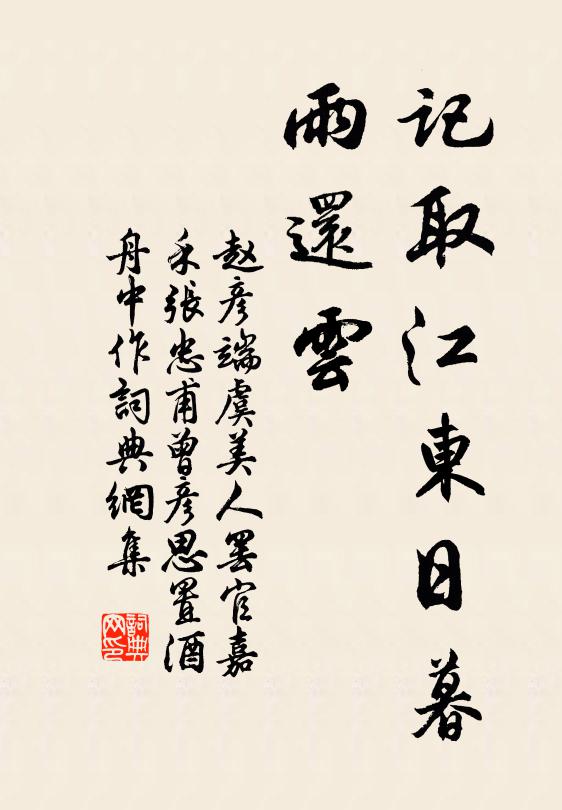 記取江東日暮
雨還雲
赵彦端虞美人罢官嘉
禾張忠甫曾彦思置酒
舟中作詞典網集
詞典
网印